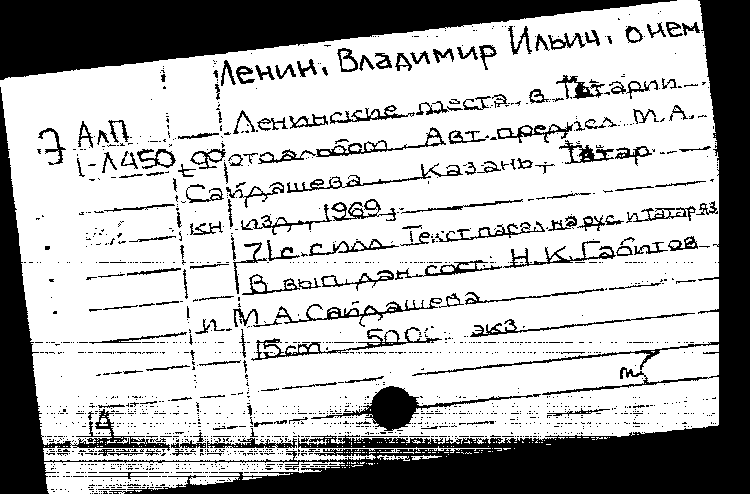 Ленин, Владимир Ильич, о нем
Э АлП
1-Л450
Ленинские места в Татарии
Фотоальбом. Авт. предисл М.А.
Сайдашева. Казань, Татар
кн изд., 1969,
71 с. с илл Текст парал. на рус. и татар яз
В вып. дан. сост. Н.К. Габитов
и М.А. Сайдашева
15 см. 5000 экз.
14